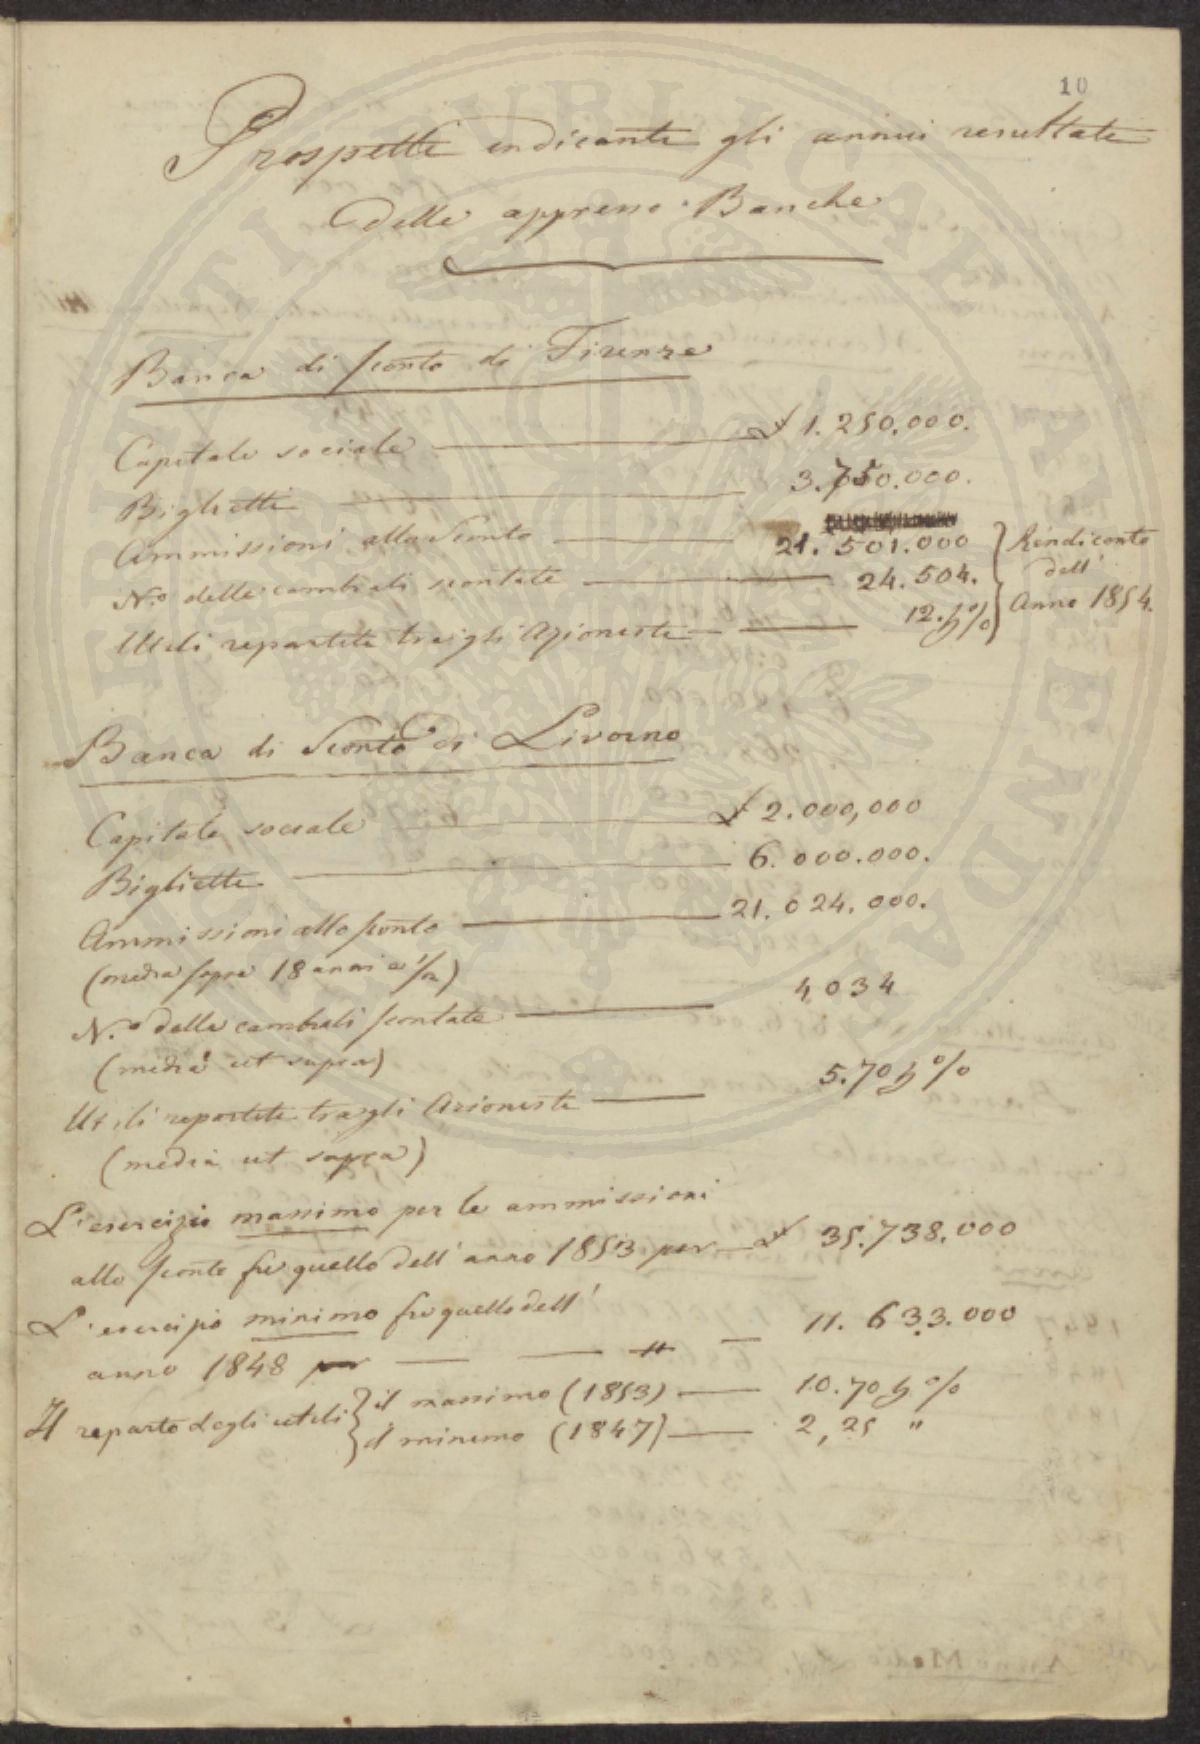 10
Prospetti indicanti gli annui resultati
delle appresso Banche
Banca di sconto di Firenze
Capitale sociale £ 1.250.000.
Biglietti 3.750.000.
Ammissioni allo Sconto 21.501.000
N.º delle cambiali scontate 24.504.
Utili repartiti tra gli Azionisti 12. p %
Rendiconto
dell'
Anno 1854.
Banca di Sconto di Livorno
Capitale sociale £ 2.000,000
Biglietti 6.000.000.
Ammissioni allo sconto 21.024.000.
(media sopra 18 anni e 1/2)
N.º delle cambiali scontate 4034
(media ut supra)
Utili repartiti tra gli Azionisti 5.70 p %
(media ut supra)
L'esercizio massimo per le ammissioni
allo sconto fu quello dell'anno 1853 per £ 35.738.000
L'esercizio minimo fu quello dell'
anno 1848 per " 11.633.000
Il reparto degli utili { il massimo (1853) 10.70 p %
il minimo (1847) 2,25 "
SENATI REI PUBLICAE AEMENDA